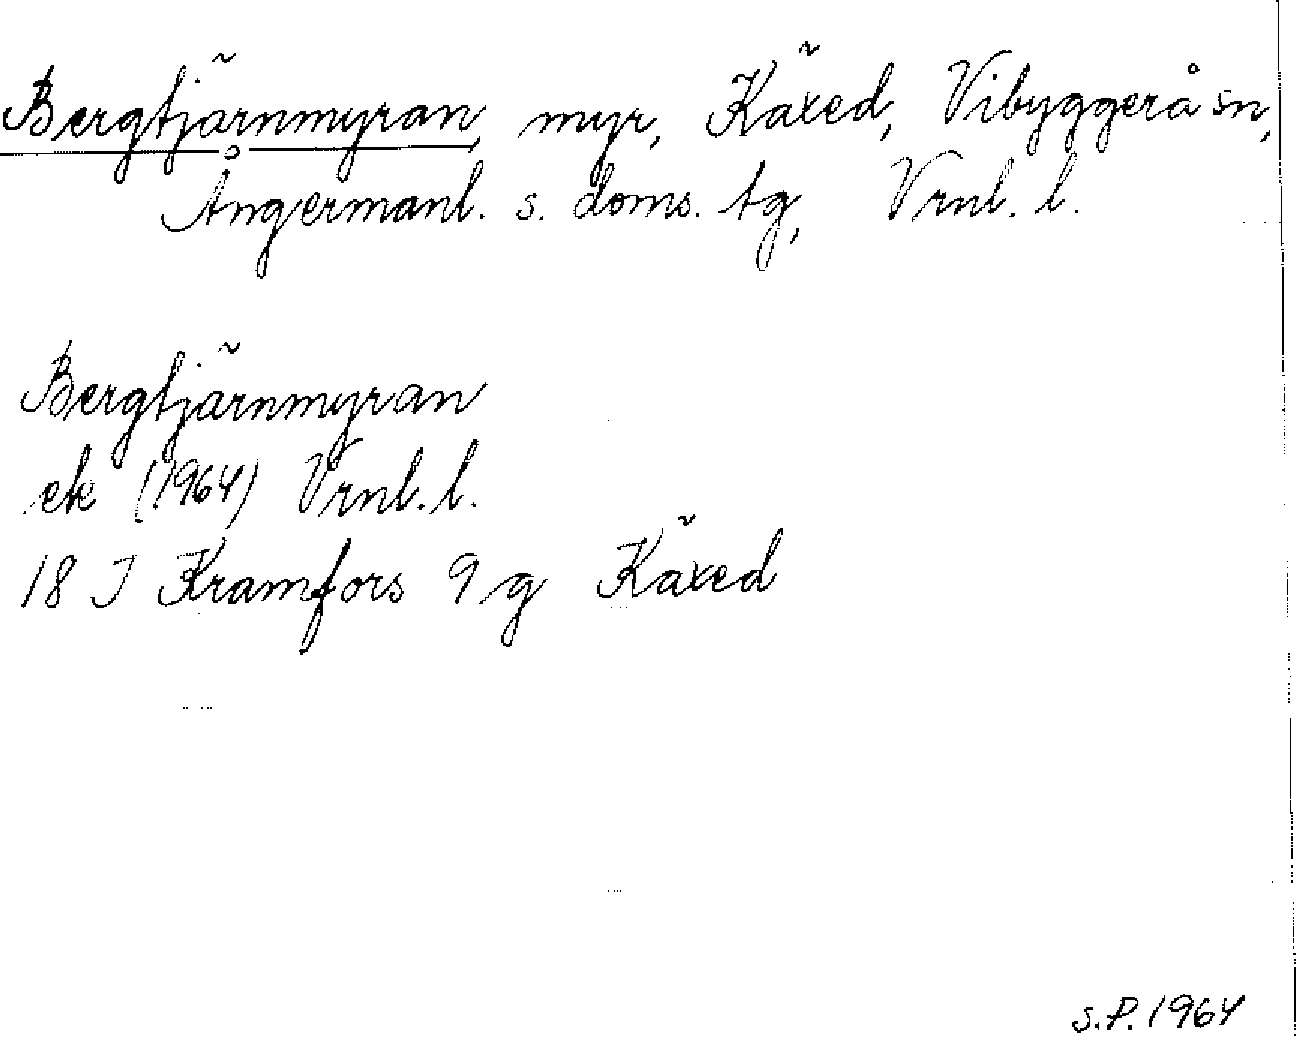 Bergtjärnmyran, myr, Käxed, Vibyggerå sn,
Ångermanl. s. doms. tg, Vrnl. l.
Bergtjärnmyran
ek (1964) Vrnl. l.
18 J Kramfors 9 g Käxed
S.P. 1964